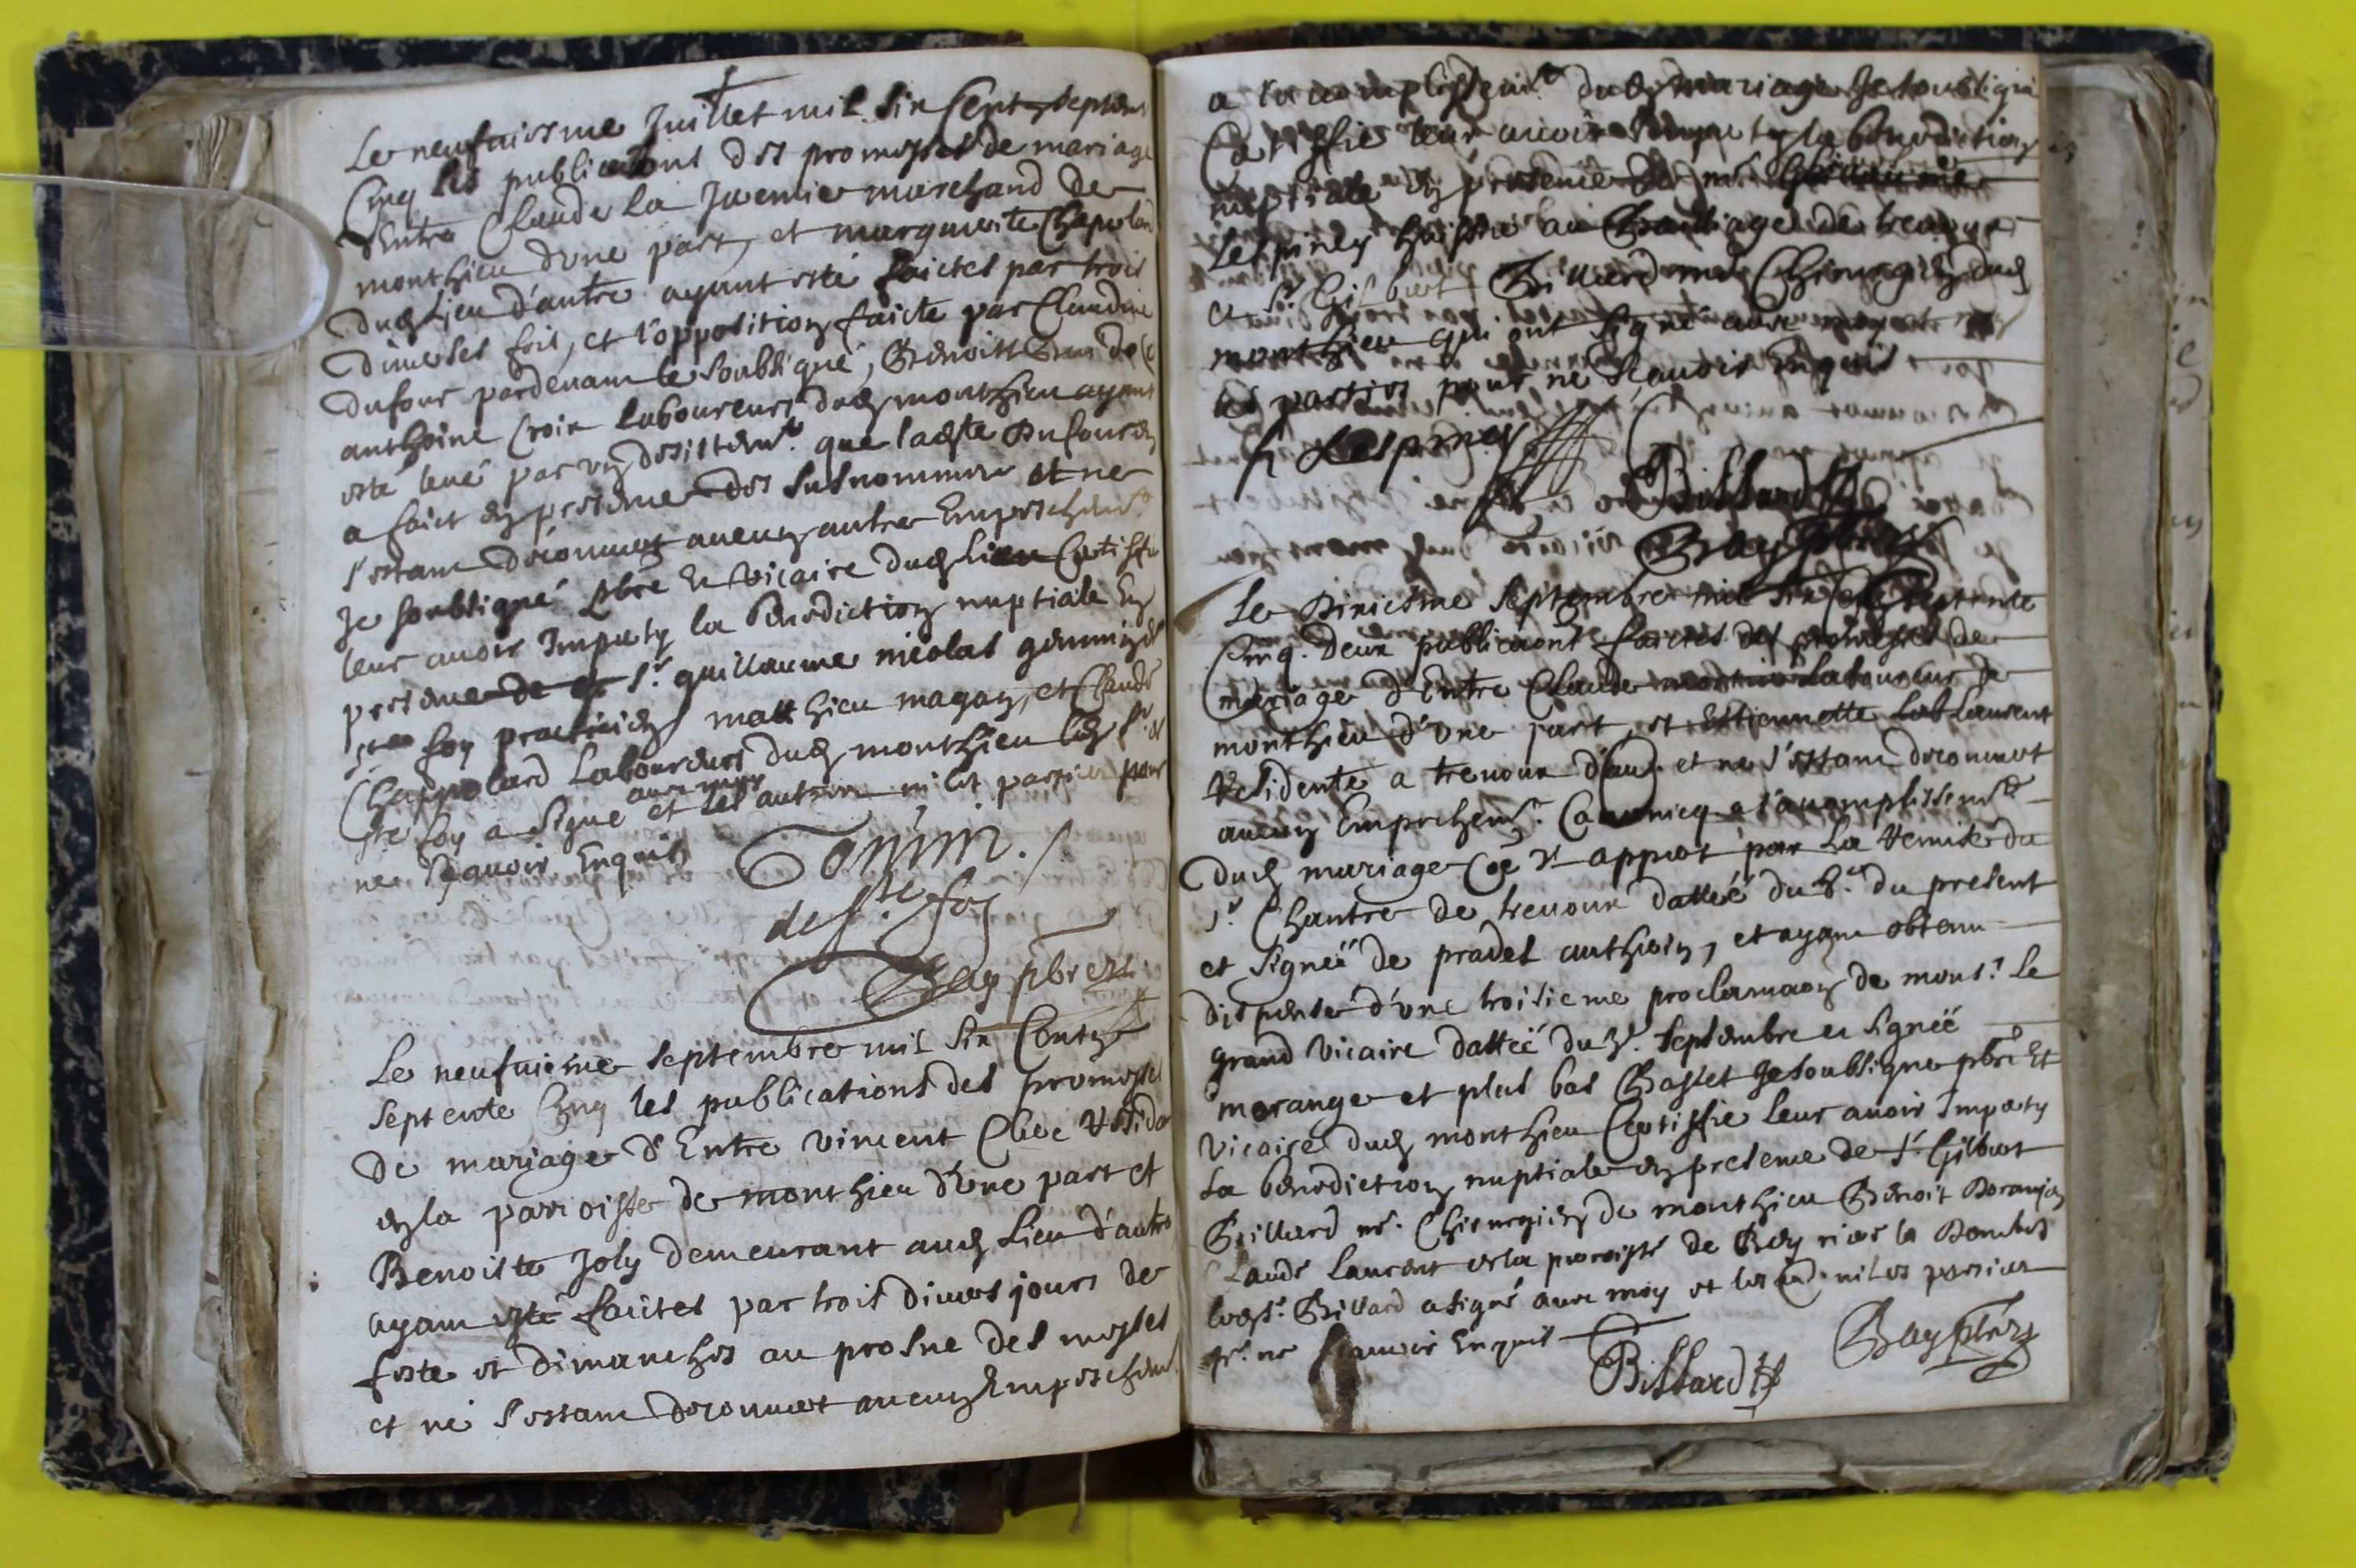 Le neufuiesme Juillet mil six Cent septente
Cinq les publications des promesses de mariage
d'Entre Claude la marchand de
monthieu d'vne part, et marguerite Chapolar
dud Lieu d'autre ayant esté faictes par trois
diuerses fois, et l'opposition faicte par Claudine
Dufour pardeuant le soubsigné, Benoist de
anthoine Croix laboureurs dud monthieu ayant
esté leué par vn desistemt. que ladite Dufour en
a faict en presence des susnommes et ne
s'estant descouuert aucun autre Empeschemt.
Je soubsigné pbre Et vicaire dud Lieu Certiffie
leur auoir Imparty la benediction nuptiale En
presence de sr. guillaume nicolas
ste foy practicien matthieu magan, et Claude
Chappolard Laboureurs dud monthieu led sr. de
auec moy
ste foy a signé et les autres ni les parties pour
ne sçauoir Enquis
de ste foy
Bay pbre
Le neufuiesme septembre mil six Cents
septente Cinq les publications des promesses
de mariage d'Entre vincent Cloe resida
en la parroisse de monthieu d'vne part et
Benoiste Joly demeurant aud Lieu d'autre
ayant esté faictes par trois diuers jours de
feste et dimanches au prosne des messes
et ne s'estant descouuert aucun Empeschemt.
a l'accomplissemt. dud mariage Je soubsigné
Certiffie leur auoir Imparty la benediction
nuptiale en presence de mr.
Lespiney huissier au Bailliage de treuoux
et sr. Gilbert Billiard me Chirurgien dud
monthieu qui ont signé auec moy et non
les parties pour ne sçauoir Enquis
Lespiney
Billard
Bay pbre
Le dixiesme septembre mil six Cent septente
Cinq. Deux publicaons faictes des promesses de
mariage d'Entre Claude laboureur de
monthieu d'vne part, et Estiennette Laurent
residente a treuoux d'aut. et ne s'estant descouuert
aucun Empeschemt. Canonicq a l'accomplissemt.
dud mariage Coe Il appert par la remise du
sr. Chantre de treuoux dattée du 8.e du present
et signée de prades anthoin, et ayant obtenu
dispense d'vne troisieme proclamaon de monsr. le
grand vicaire dattée du septembre et signée
morange et plus bas Basset Je soubsigne pbre Et
vicaire dud monthieu Certiffie leur auoir Imparty
La benediction nuptiale en presence de sr. Gilbert
Billard me. Chirurgien de monthieu Benoit
Claude Laurent de la parroisse de en Dombes
led sr. Billard a signé auec moy et les aud. ni les parties
pr. ne sçauoir Enquis
Billard
Bay pbre